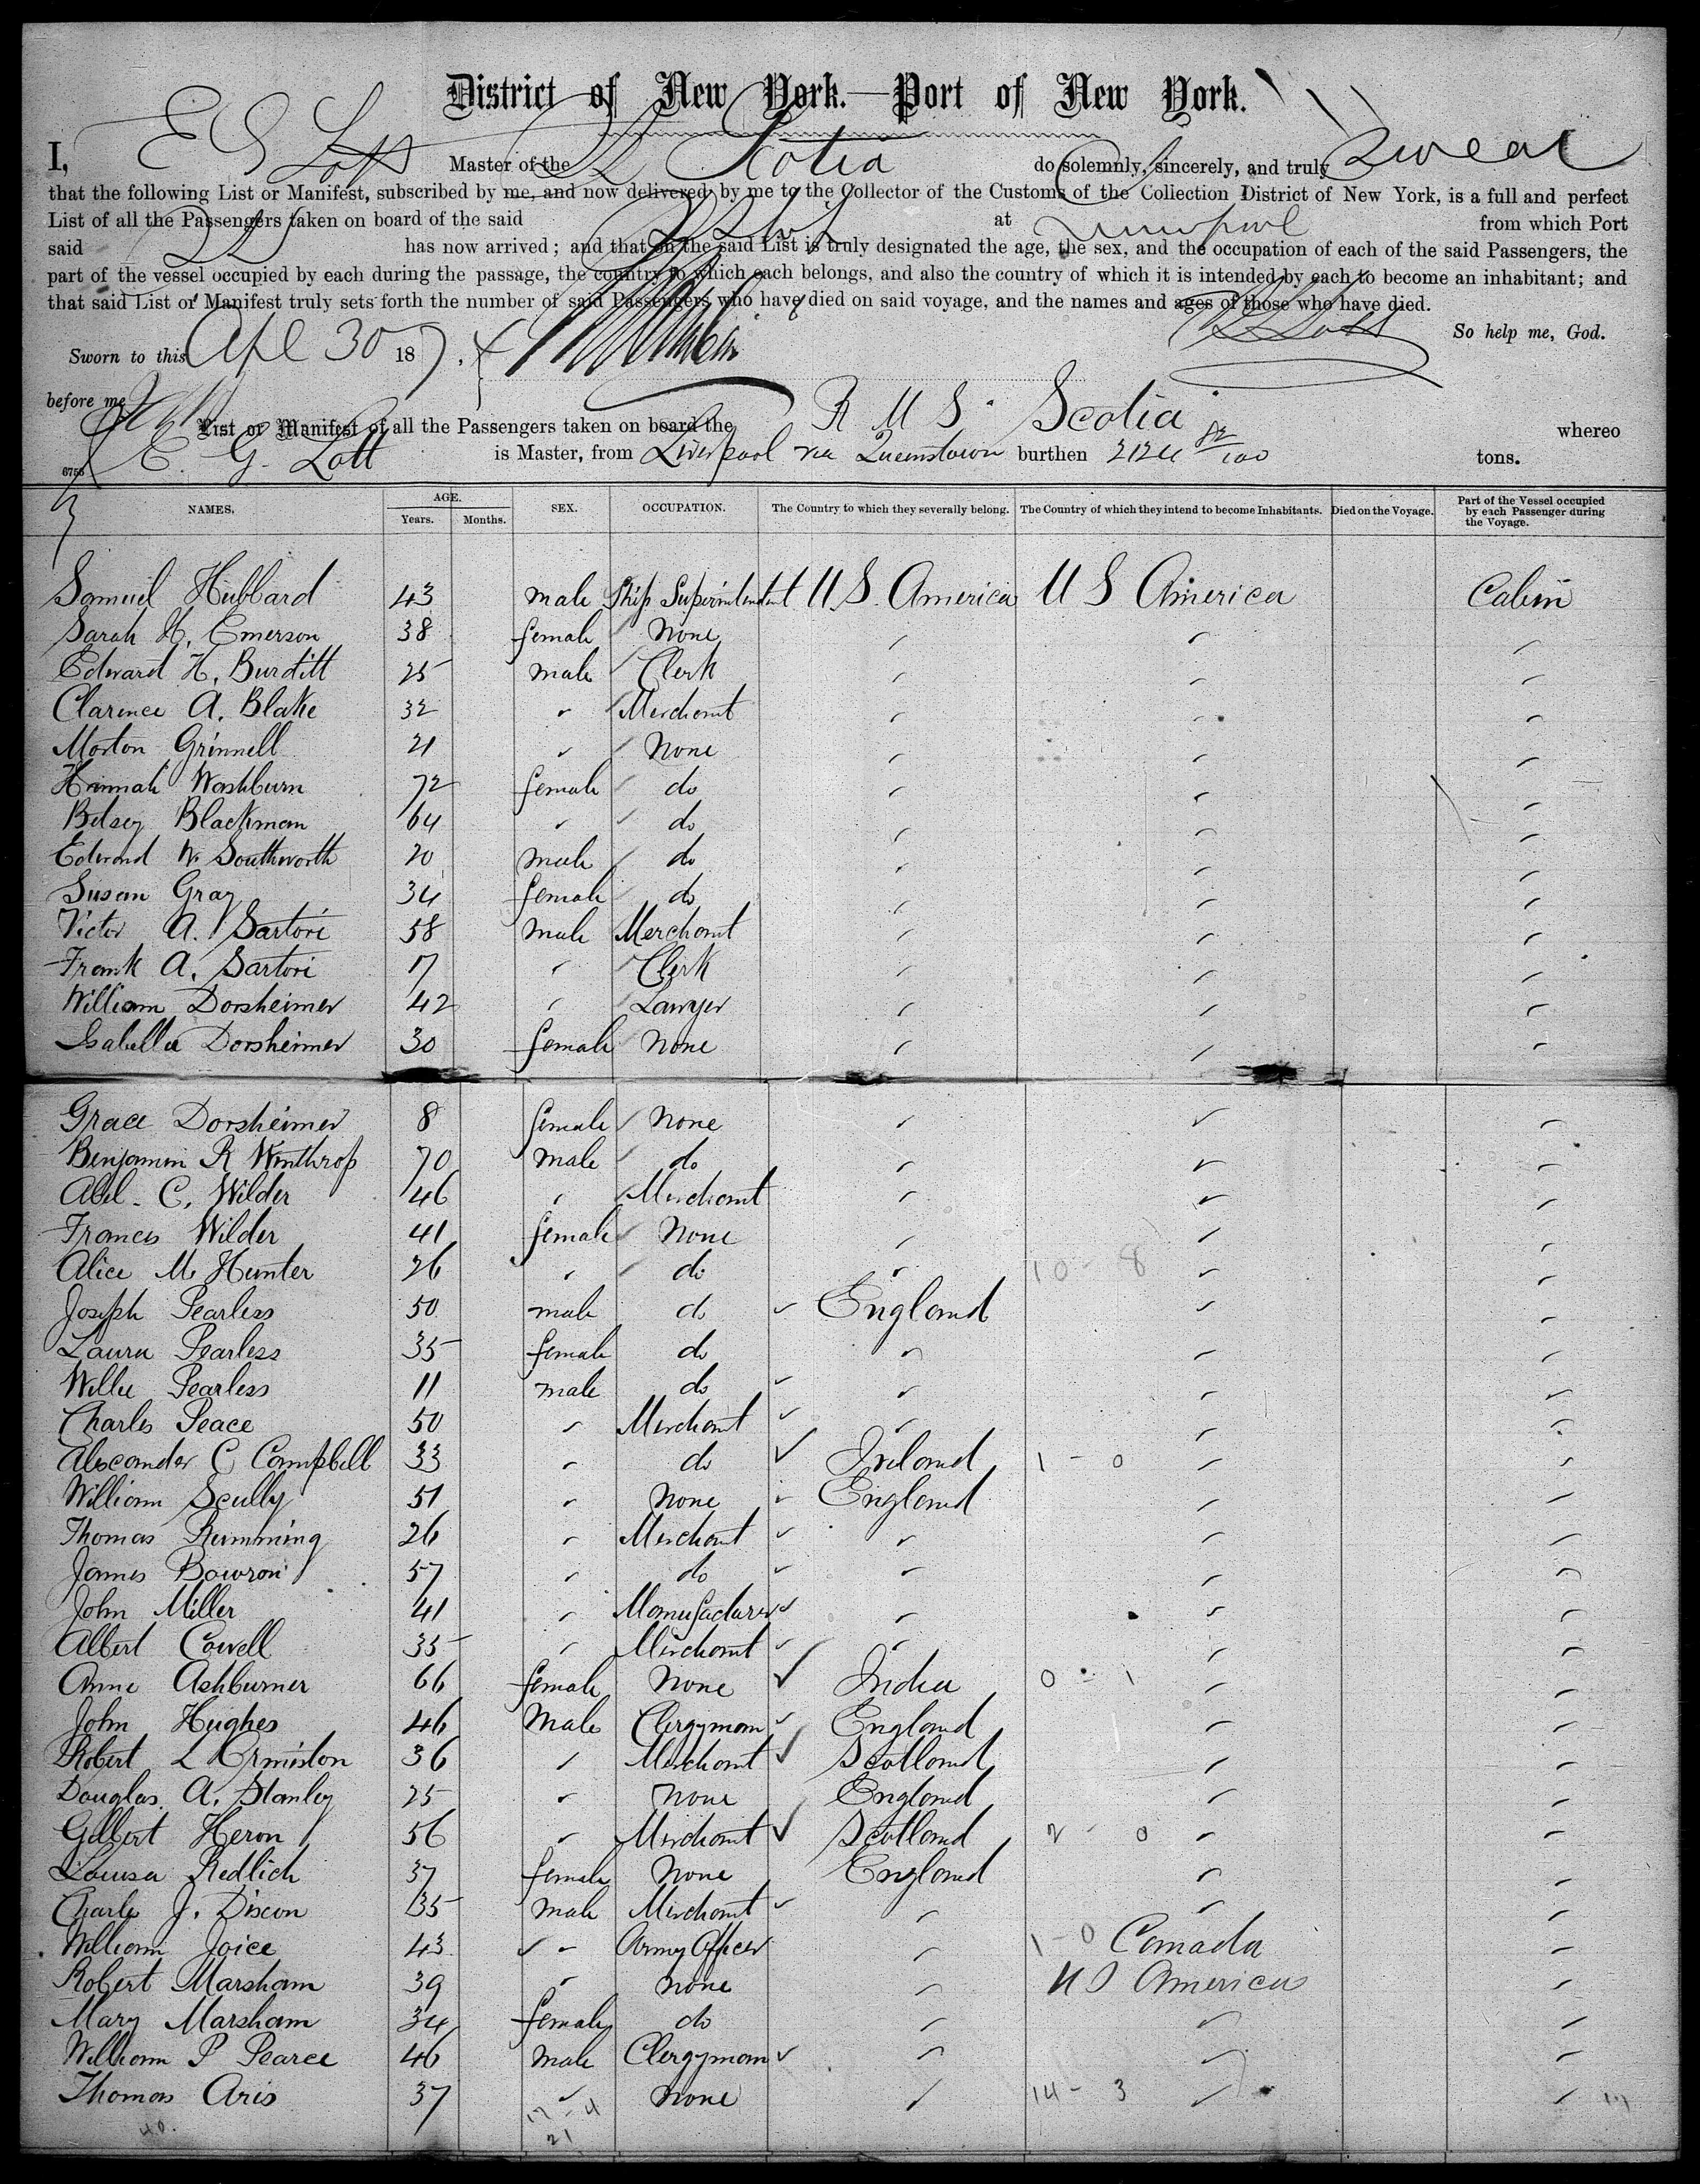 District of New York.—Port of New York.
I, E G Lott Master of the SS Scotia do solemnly, sincerely, and truly swear
that the following List or Manifest, subscribed by me, and now delivered by me to the Collector of the Customs of the Collection District of New York, is a full and perfect
List of all the Passengers taken on board of the said at Liverpool from which Port
said has now arrived; and that on the said List is truly designated the age, the sex, and the occupation of each of the said Passengers, the
part of the vessel occupied by each during the passage, the country to which each belongs, and also the country of which it is intended by each to become an inhabitant; and
that said List or Manifest truly sets forth the number of said Passengers who have died on said voyage, and the names and ages of those who have died.
So help me, God.
Sworn to this Apl 30 187
before me
E G Lott
List or Manifest of all the Passengers taken on board the R M S Scotia whereo
6756 E. G. Lott is Master, from Liverpool via Queenstown burthen 2124 82/100 tons.
NAMES. AGE. SEX. OCCUPATION. The Country to which they severally belong. The Country of which they intend to become Inhabitants. Died on the Voyage. Part of the Vessel occupied by each Passenger during the Voyage.
Years. Months.
Samuel Hubbard 43 male Ship Superintendent U.S. America U S America Cabin
Sarah H. Emerson 38 female None
Edward H. Burditt 25 male Clerk
Clarence A. Blake 32 " Merchant
Morton Grinnell 21 " None
Hannah Washburn 72 female do
Betsey Blackman 64 " do
Edward W. Southworth 20 male do
Susan Gray 34 female do
Victor A. Sartori 58 male Merchant
Frank A. Sartori 17 " Clerk
William Dorsheimer 42 " Lawyer
Isabella Dorsheimer 30 female None
Grace Dorsheimer 8 female None
Benjamin R Winthrop 70 male do
Abel C. Wilder 46 " Merchant
Frances Wilder 41 female None
Alice M. Hunter 26 " do 10 - 8
Joseph Pearless 50 male do England
Laura Pearless 35 female do "
Willie Pearless 11 male do "
Charles Peace 50 " Merchant "
Alexander C Campbell 33 " do Ireland 1 - 0
William Scully 51 " None England
Thomas Rimming 26 " Merchant "
James Bowron 57 " do "
John Miller 41 " Manufacturer "
Albert Cowell 35 " Merchant "
Anne Ashburner 66 female None India 0 - 1
John Hughes 46 Male Clergyman England
Robert L Ormiston 36 " Merchant Scotland
Douglas A. Stanley 25 " None England
Gilbert Heron 56 " Merchant Scotland 2 - 0
Louisa Redlich 37 female None England
Charles J. Dixon 35 male Merchant "
William Joice 43 " Army Officer " 1 - 0 Canada
Robert Marsham 39 " None " U S America
Mary Marsham 34 female do "
William P Pearce 46 male Clergyman "
Thomas Aris 37 " None " 14 - 3
40. 17 - 4
21